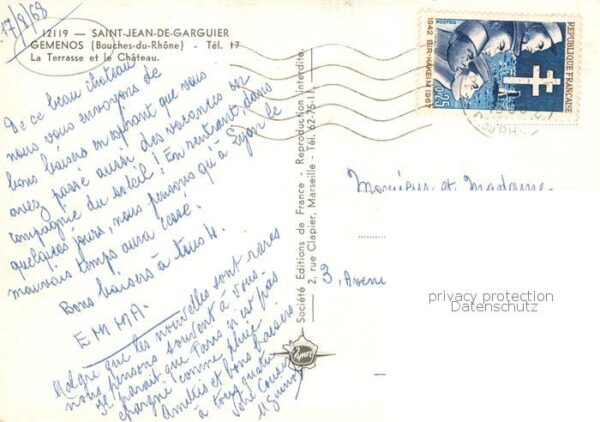 17/8/68
12119 — SAINT-JEAN-DE-GARGUIER
GEMENOS (Bouches-du-Rhône) - Tél. 17
La Terrasse et le Château.
De ce beau chateau
nous vous envoyons de
bons baisers en espérant que vous
avez passé aussi des vacances en
compagnie du soleil! En rentrant, dans
quelques jours, nous pensons qu'à Lyon le
mauvais temps aura cessé.
Bons baisers à tous 4.
EMMA.
Malgré que les nouvelles sont rares
nous pensons souvent à vous.
Il parait que Paris n'est pas
changé comme
Amitiés et bons baisers
à tous quatre
Société Editions de France - Reproduction interdite.
2, rue Clapier, Marseille - Tél. 62-75-11
1942 BIR-HAKEIM 1967
POSTES
0,25
REPUBLIQUE FRANÇAISE
Monsieur et Madame
3, Avenu
privacy protection
Datenschutz